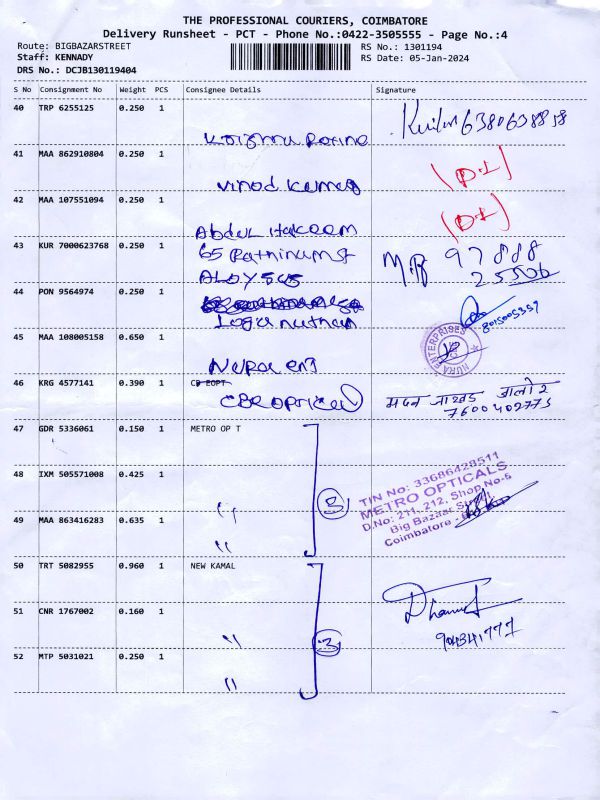 THE PROFESSIONAL COURIERS, COIMBATORE
Delivery Runsheet - PCT - Phone No.:0422-3505555 - Page No.:4
Route: BIGBAZARSTREET RS No.: 1301194
Staff: KENNADY RS Date: 05-Jan-2024
DRS No.: DCJB130119404
S No Consignment No Weight PCS Consignee Details Signature
40 TRP 6255125 0.250 1
6380638858
41 MAA 862910804 0.250 1
Vinod Kumar
42 MAA 107551094 0.250 1
Abdul Hakeem
43 KUR 7000623768 0.250 1 65 Rathinam st
97888
25506
ALOYSUS
44 PON 9564974 0.250 1
Loganathan
8015005359
45 MAA 108005158 0.650 1
ENTERPRISES
46 KRG 4577141 0.390 1 CB EOPT
CBE OPTICAL
7600402773
47 GDR 5336061 0.150 1 METRO OP T
48 IXM 505571008 0.425 1 "
3
TIN No: 33686428511
METRO OPTICALS
D.No: 211, 212, Shop No-5
Big Bazaar Street,
Coimbatore -
49 MAA 863416283 0.635 1 "
50 TRT 5082955 0.960 1 NEW KAMAL
51 CNR 1767002 0.160 1 "
3
52 MTP 5031021 0.250 1 "